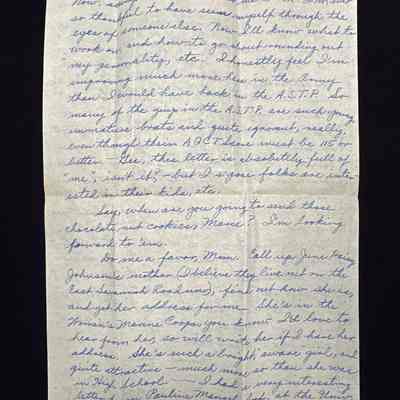 so thankful to have seen myself through the
eyes of someone else. Now I'll know what to
work on and how to go about rounding out
my personality, etc. I honestly feel I'm
improving much more here in the Army
than I would have back in the A.S.T.P. So
many of the guys in the A.S.T.P. are such young
immature brats and quite ignorant, really,
even though their AGCT score must be 115 or
better - Gee, this letter is absolutely full of
"me", isn't it? - but I s'pose folks are inter-
ested in their kids, etc.
Say, when are you going to send those
chocolate nut cookies, Mame? I'm looking
forward to 'em.
Do me a favor, Mom. Call up June
Johnson's mother (I believe they live out on the
East Savanah Road now), find out how she is,
and get her address for me. She's in the
Woman's Marine Corps you know. I'd love to
hear from her, so will write her if I have her
address. She's such a bright, girl, and
quite attractive - much more so than she was
in High School - I had a very interesting
letter Pauline at the Univ.